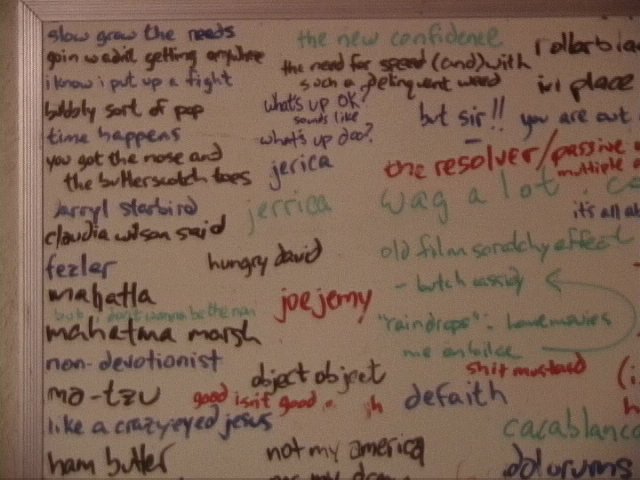 slow grow the needs
goin wadil getting anywhere
i know i put up a fight
bubbly sort of pop
time happens
you got the nose and
the butterscotch toes
jarryl starbird
claudia wilson said
fezler
mahatla
but i don't wanna be the man
mahatma marsh
non-devotionist
ma-tzu
like a crazyeyed jesus
ham butler
the new confidence
the need for speed (and) with
such a delinquent weed
what's up OK?
sounds like
what's up doc?
jerica
jerrica
hungry david
joe jemy
object object
good isn't good
not my america
but sir!! you are out
in place
the resolver/passive
multiple
wag a lot.
it's all
old film scratchy effect
- butch cassidy
"raindrops": homemovies
shit mustard
defaith
cacablanca
dolorums